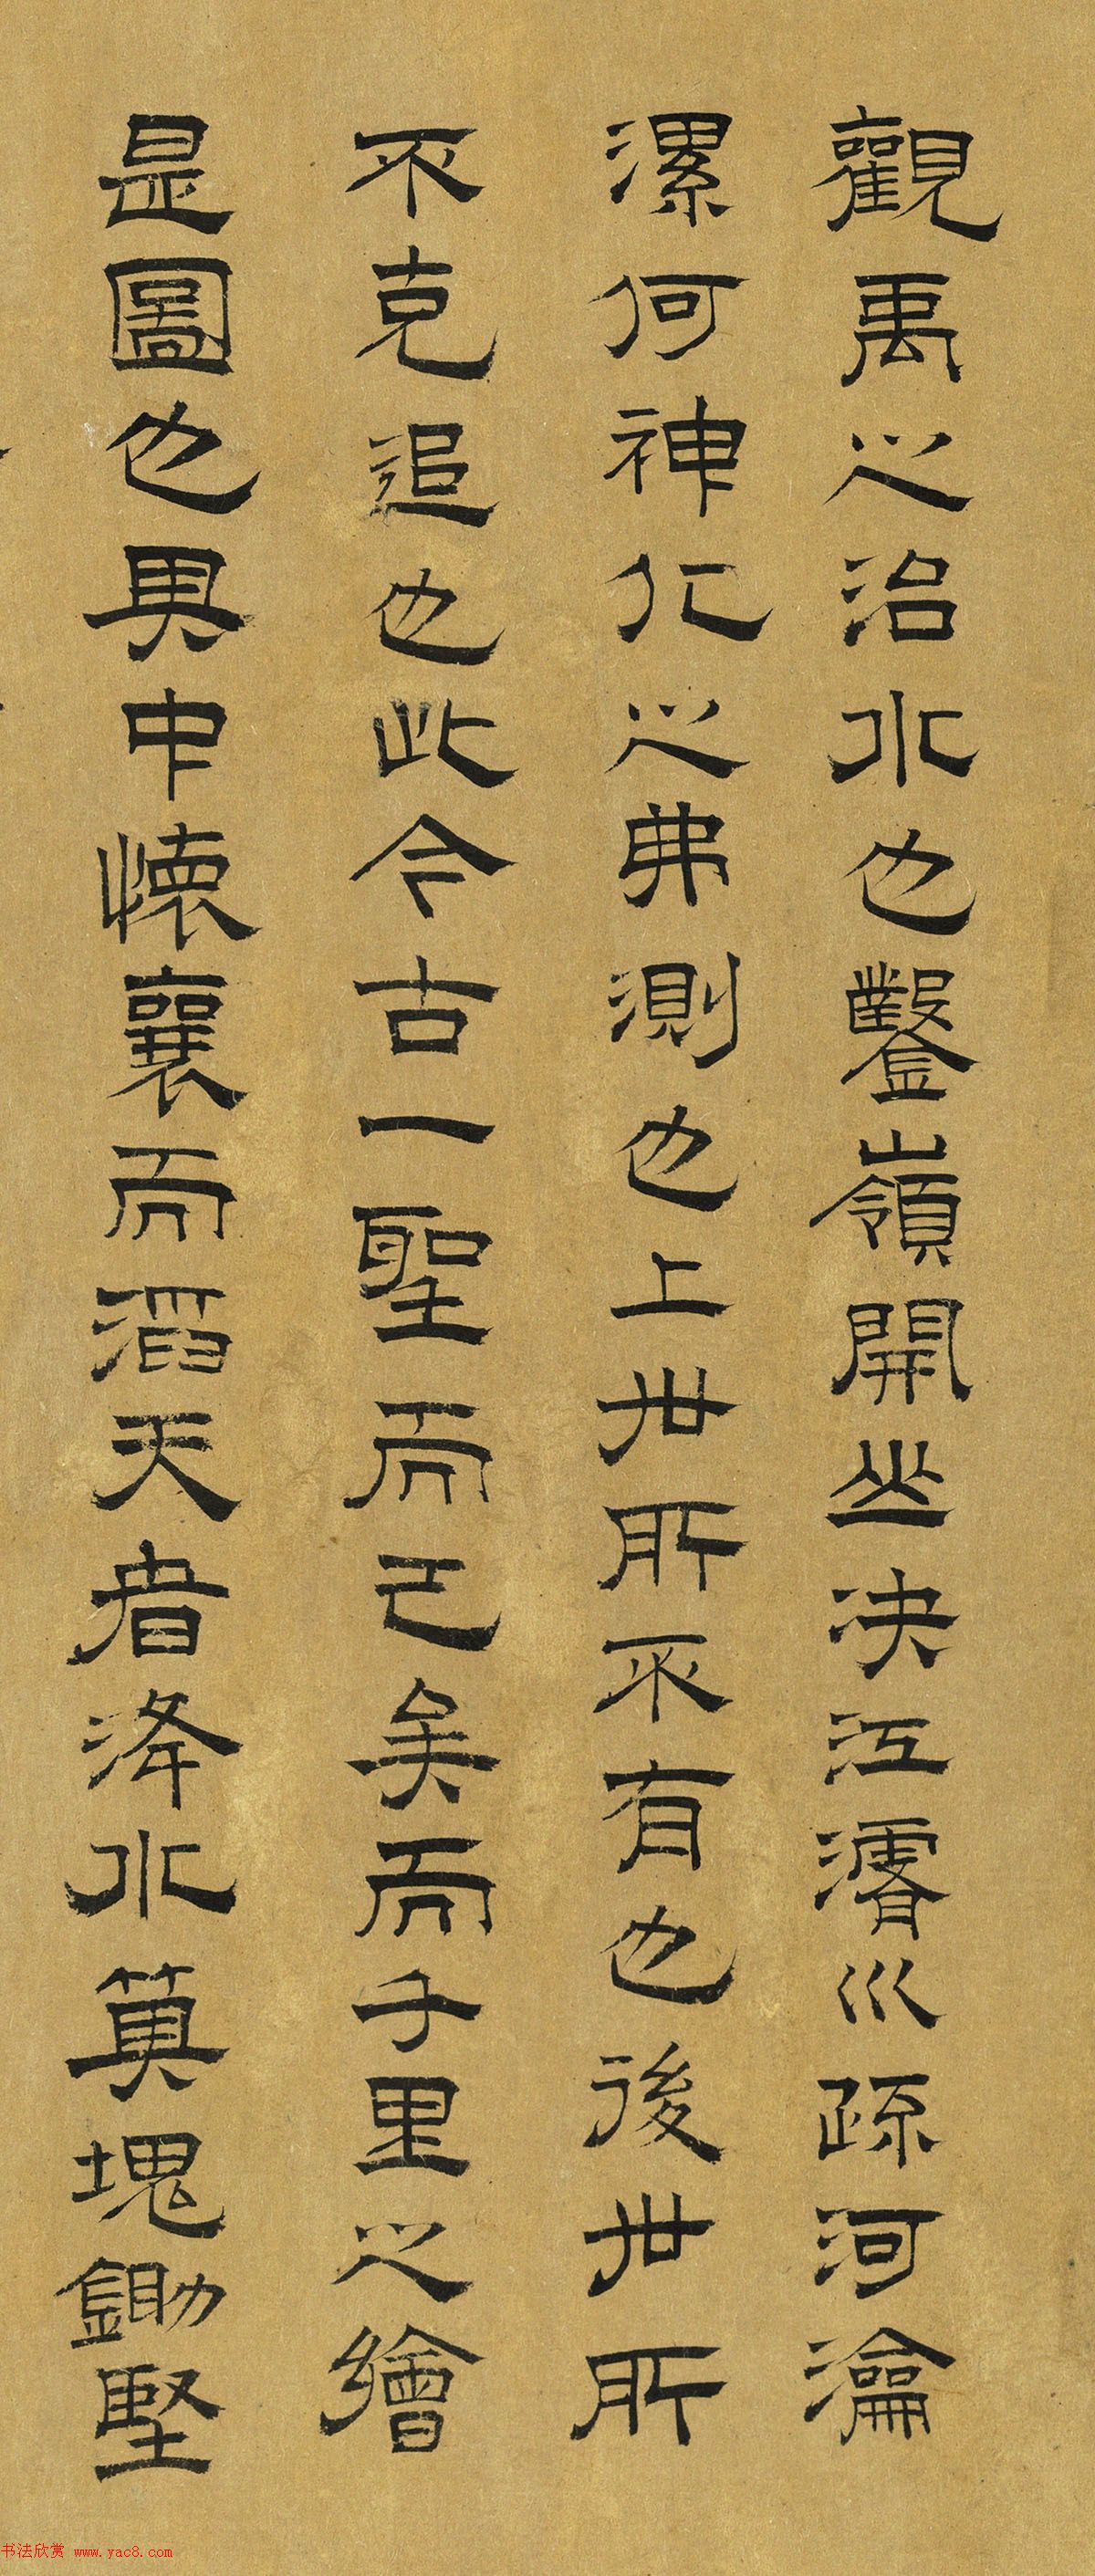 觀禹之治水也鑿嶺開丘決江濬川疏河瀹
漯何神化之弗測也上世所不有也後世所
不克追也此今古一聖而已矣而千里之繪
是圖也其中懷襄而滔天者洚水箕塊鋤堅
书法欣赏 www.yac8.com